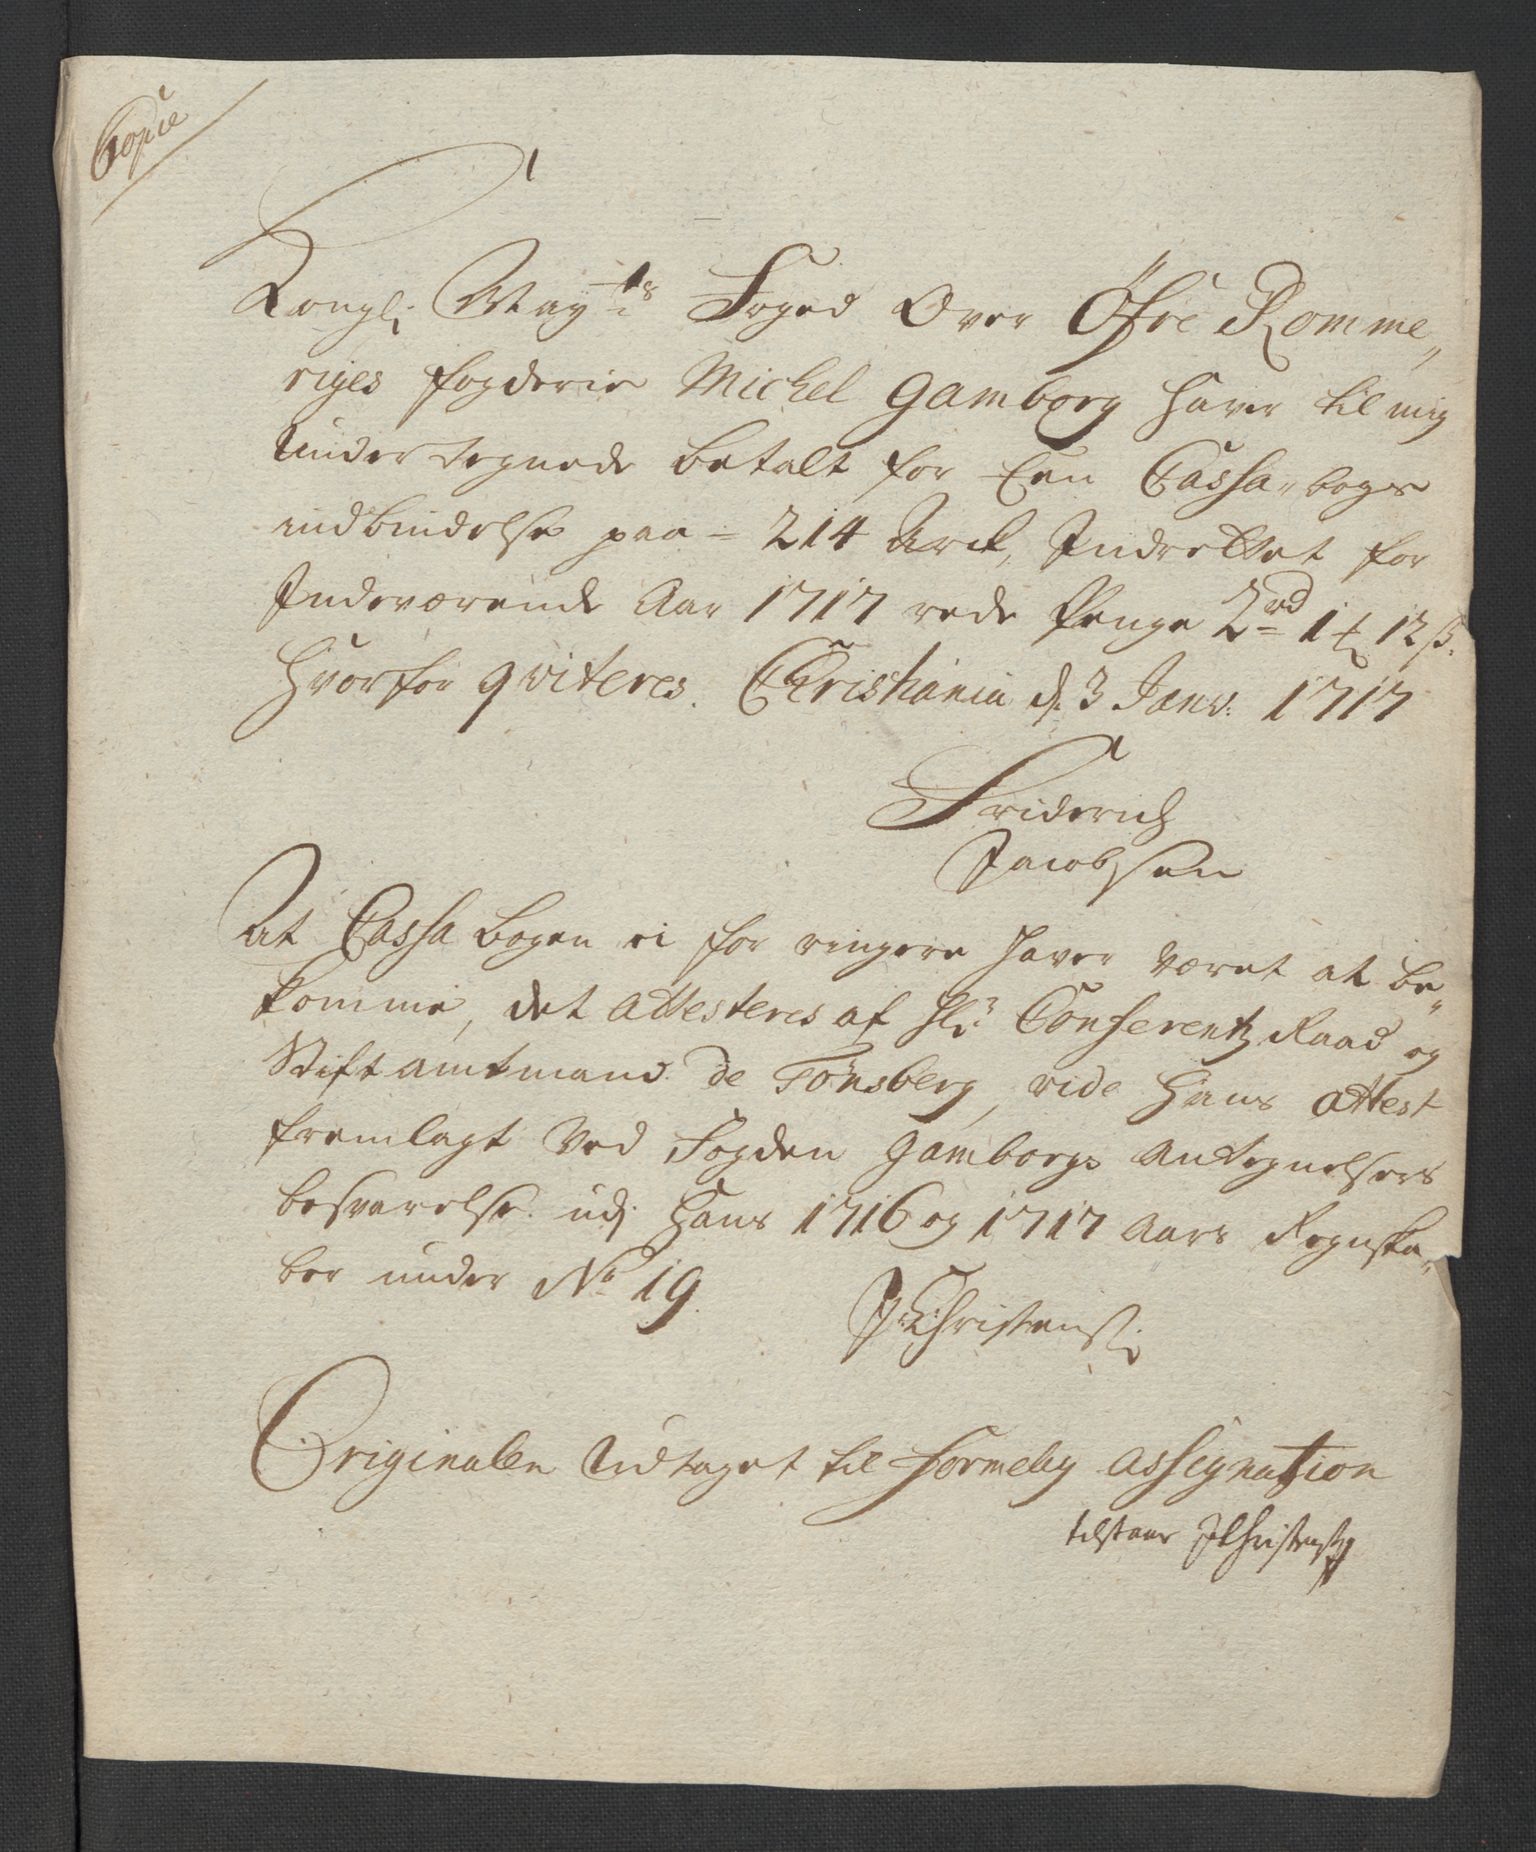 Copie
Kongl: May.ts Foged Over Øfre Romme„
riges fogderie Michel Gamborg haver til mig
Under tegnede betalt for Een Cassa„bogs
indbindelse paa - 214 Arck, Indrettet for
Indeværende Aar 1717 rede Penge 2 rd 1 ₰ 12 β.
Hvorfor qviteres. Christiania d. 3 Janv: 1717
Friderich
Jacobsen
At Cassa bogen ei for ringere haver været at be„
komme, det attesteres af Hr. Conferentz Raad og
Stiftamtmand de Tønsberg, vide Hans attest
fremlagt ved Fogden Gamborgs Antegnelsers
besvarelse udj Hans 1716 og 1717 Aars Regnska„
ber under No 19.
J: Christens:
Originalen Udtaget til Formelig assignation
tilstaar JChristens